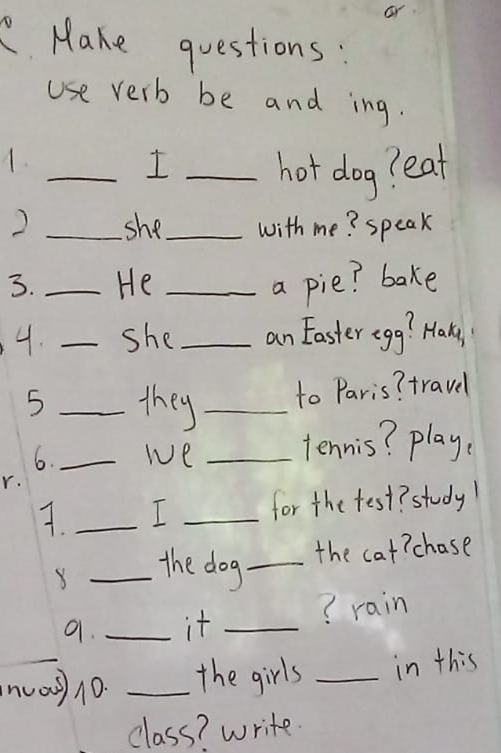 or.
C. Make questions:
use verb be and ing.
1. ___ I ___ hot dog? eat
2 ___ she ___ with me? speak
3. ___ He ___ a pie? bake
4. ___ She ___ an Easter egg? Make
5 ___ they ___ to Paris? travel
6. ___ we ___ tennis? play.
r.
7. ___ I ___ for the test? study
8 ___ the dog ___ the cat? chase
9. ___ it ___ ? rain
10. ___ the girls ___ in this
class? write.